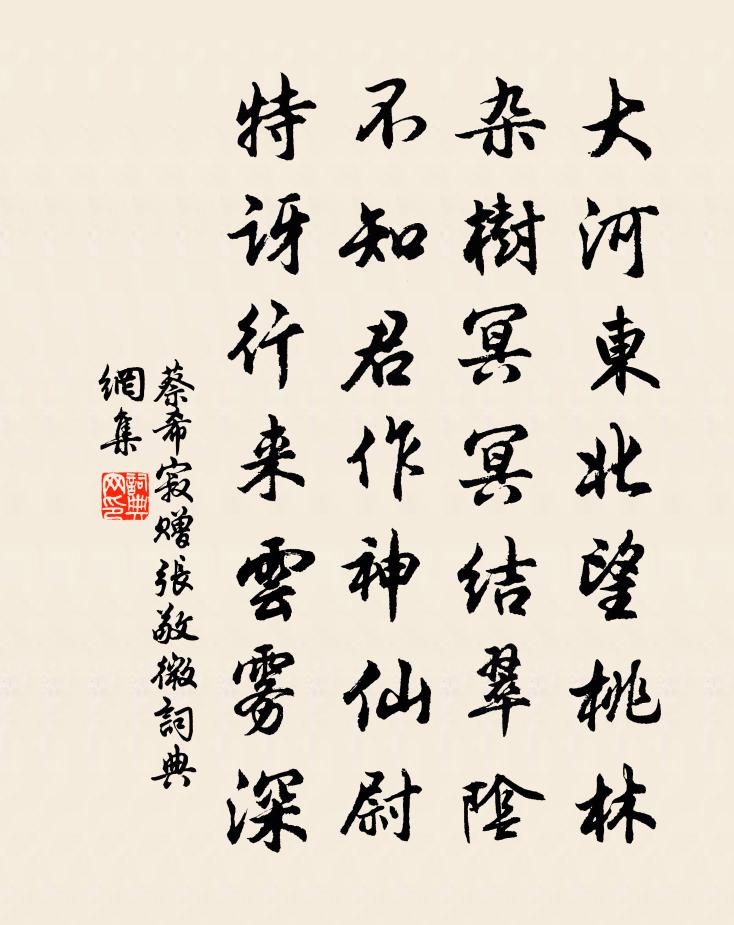 大河東北望桃林
杂樹冥冥結翠陰
不知君作神仙尉
特讶行来雲雾深
蔡希寂赠張敬微詞典
網集
詞典
网印